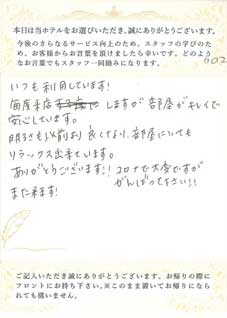 本日は当ホテルをお選びいただき、誠にありがとうございます。
今後のさらなるサービス向上のため、スタッフの学びのため、お客様からお言葉を頂けましたら幸いです。どのようなお言葉でもスタッフ一同励みになります。
602
いつも利用しています!
毎度来店しますが部屋がキレイで
安心しています。
明るさも以前より良くなり、部屋にいても
リラックス出来ています。
ありがとうございます!! コロナで大変ですが
がんばって下さい!!
また来ます!
ご記入いただき誠にありがとうございます。お帰りの際に
フロントにお持ち下さい。※このまま置いてお帰りになら
れても構いません。